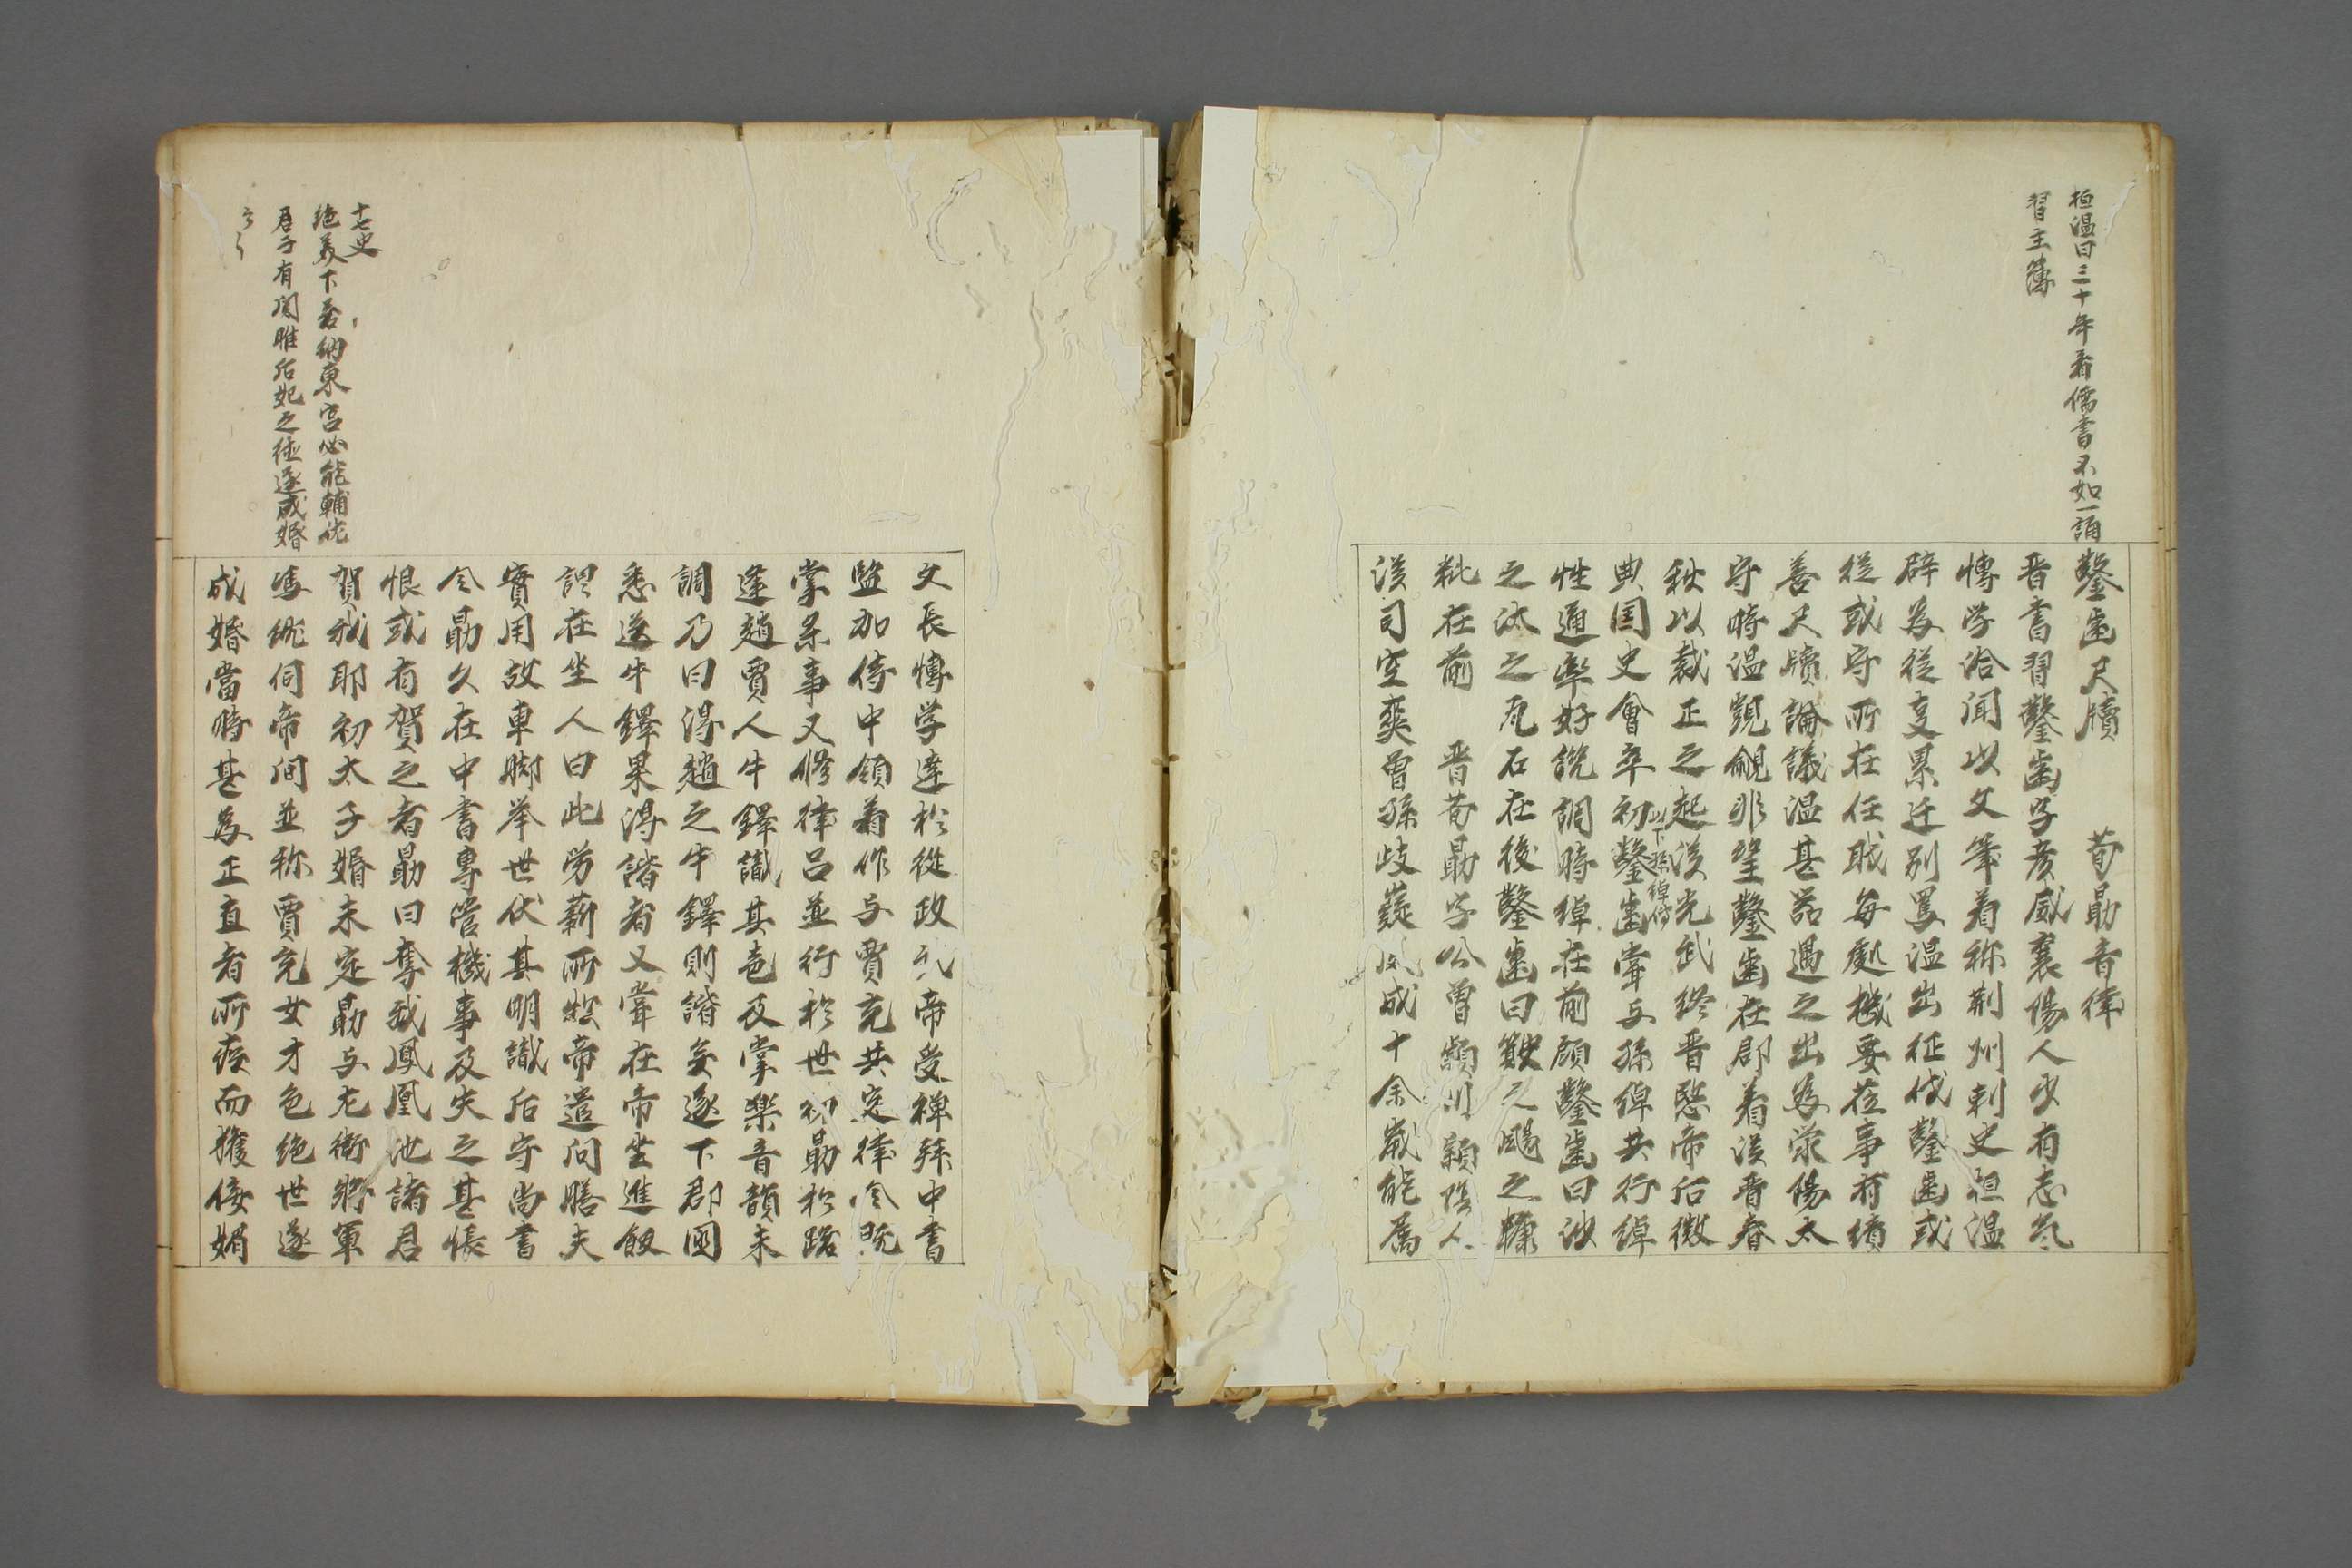 桓温曰三十年看儒書不如一詣
習主簿
鑿歯尺牘　荀勗音律
晋書習鑿歯字彦威襄陽人少有志気
博学洽聞以文筆着称荊州刺史桓温
辟為従事累迁別駕温出征伐鑿歯或
従或守所在任職毎処機要莅事有績
善尺牘論議温甚器遇之出為滎陽太
守時温覬覦非望鑿歯在郡着漢晋春
秋以裁正之起漢光武終晋愍帝后徴
典国史會卒初鑿歯嘗与孫綽共行綽
以下孫綽傳
性通率好譏調時綽在前顧鑿歯曰沙
之汰之瓦石在後鑿歯曰簸之颺之糠
粃在前　晋荀勗字公曾潁川潁陰人
漢司空爽曽孫岐嶷夙成十余歳能属
文長博学達於従政武帝受禅拜中書
監加侍中領着作与賈充共定律令既
掌楽事又修律呂並行於世初勗於路
逢趙賈人牛鐸識其声及掌楽音韻未
調乃曰得趙之牛鐸則諧矣遂下郡國
悉送牛鐸果得諧者又嘗在帝坐進飯
謂在坐人曰此労薪所炊帝遣問膳夫
實用故車脚挙世伏其明識后守尚書
令勗久在中書専管機事及失之甚悵
恨或有賀之者勗曰奪我鳳凰池諸君
賀我耶初太子婚未定勗与左衛将軍
馮紞伺帝間並称賈充女才色絶世遂
成婚當時甚為正直者所疾而獲佞媚
十七史
絶美下若納東宮必能輔佐
君子有関雎后妃之徳遂成婚
云々